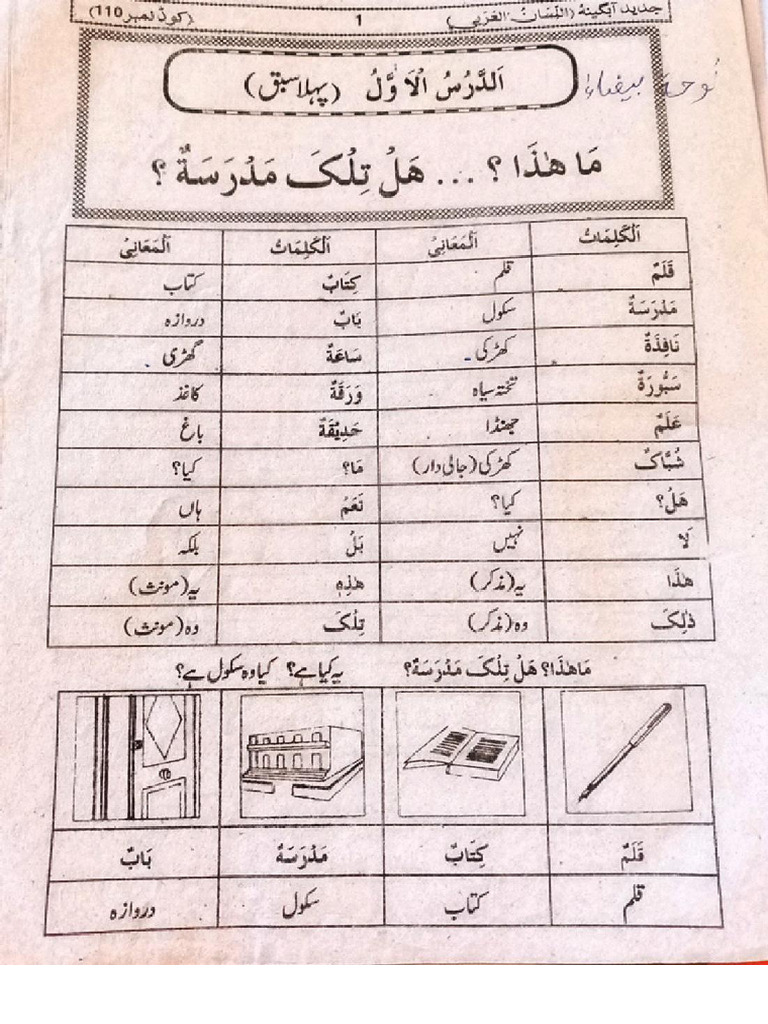 جدید آبگینہ (اللسان العربی) 1 (کوڈ نمبر 110)
اَلدَّرْسُ الْاَوَّلُ (پہلا سبق)
مَا هٰذَا ؟ ... هَلْ تِلْکَ مَدْرَسَةٌ ؟
اَلْکَلِمَاتُ اَلْمَعَانِیُ اَلْکَلِمَاتُ اَلْمَعَانِیُ
قَلَمٌ قلم کِتَابٌ کتاب
مَدْرَسَةٌ سکول بَابٌ دروازہ
نَافِذَةٌ کھڑکی سَاعَةٌ گھڑی
سَبُّورَةٌ تختہ سیاہ وَرَقَةٌ کاغذ
عَلَمٌ جھنڈا حَدِیْقَةٌ باغ
شُبَّاکٌ کھڑکی (جالی دار) مَا؟ کیا؟
هَلْ؟ کیا؟ نَعَمْ ہاں
لَا نہیں بَلْ بلکہ
هٰذَا یہ (مذکر) هٰذِهٖ یہ (مونث)
ذٰلِکَ وہ (مذکر) تِلْکَ وہ (مونث)
مَا هٰذَا؟ هَلْ تِلْکَ مَدْرَسَةٌ؟ یہ کیا ہے؟ کیا وہ سکول ہے؟
قَلَمٌ کِتَابٌ مَدْرَسَةٌ بَابٌ
قلم کتاب سکول دروازہ